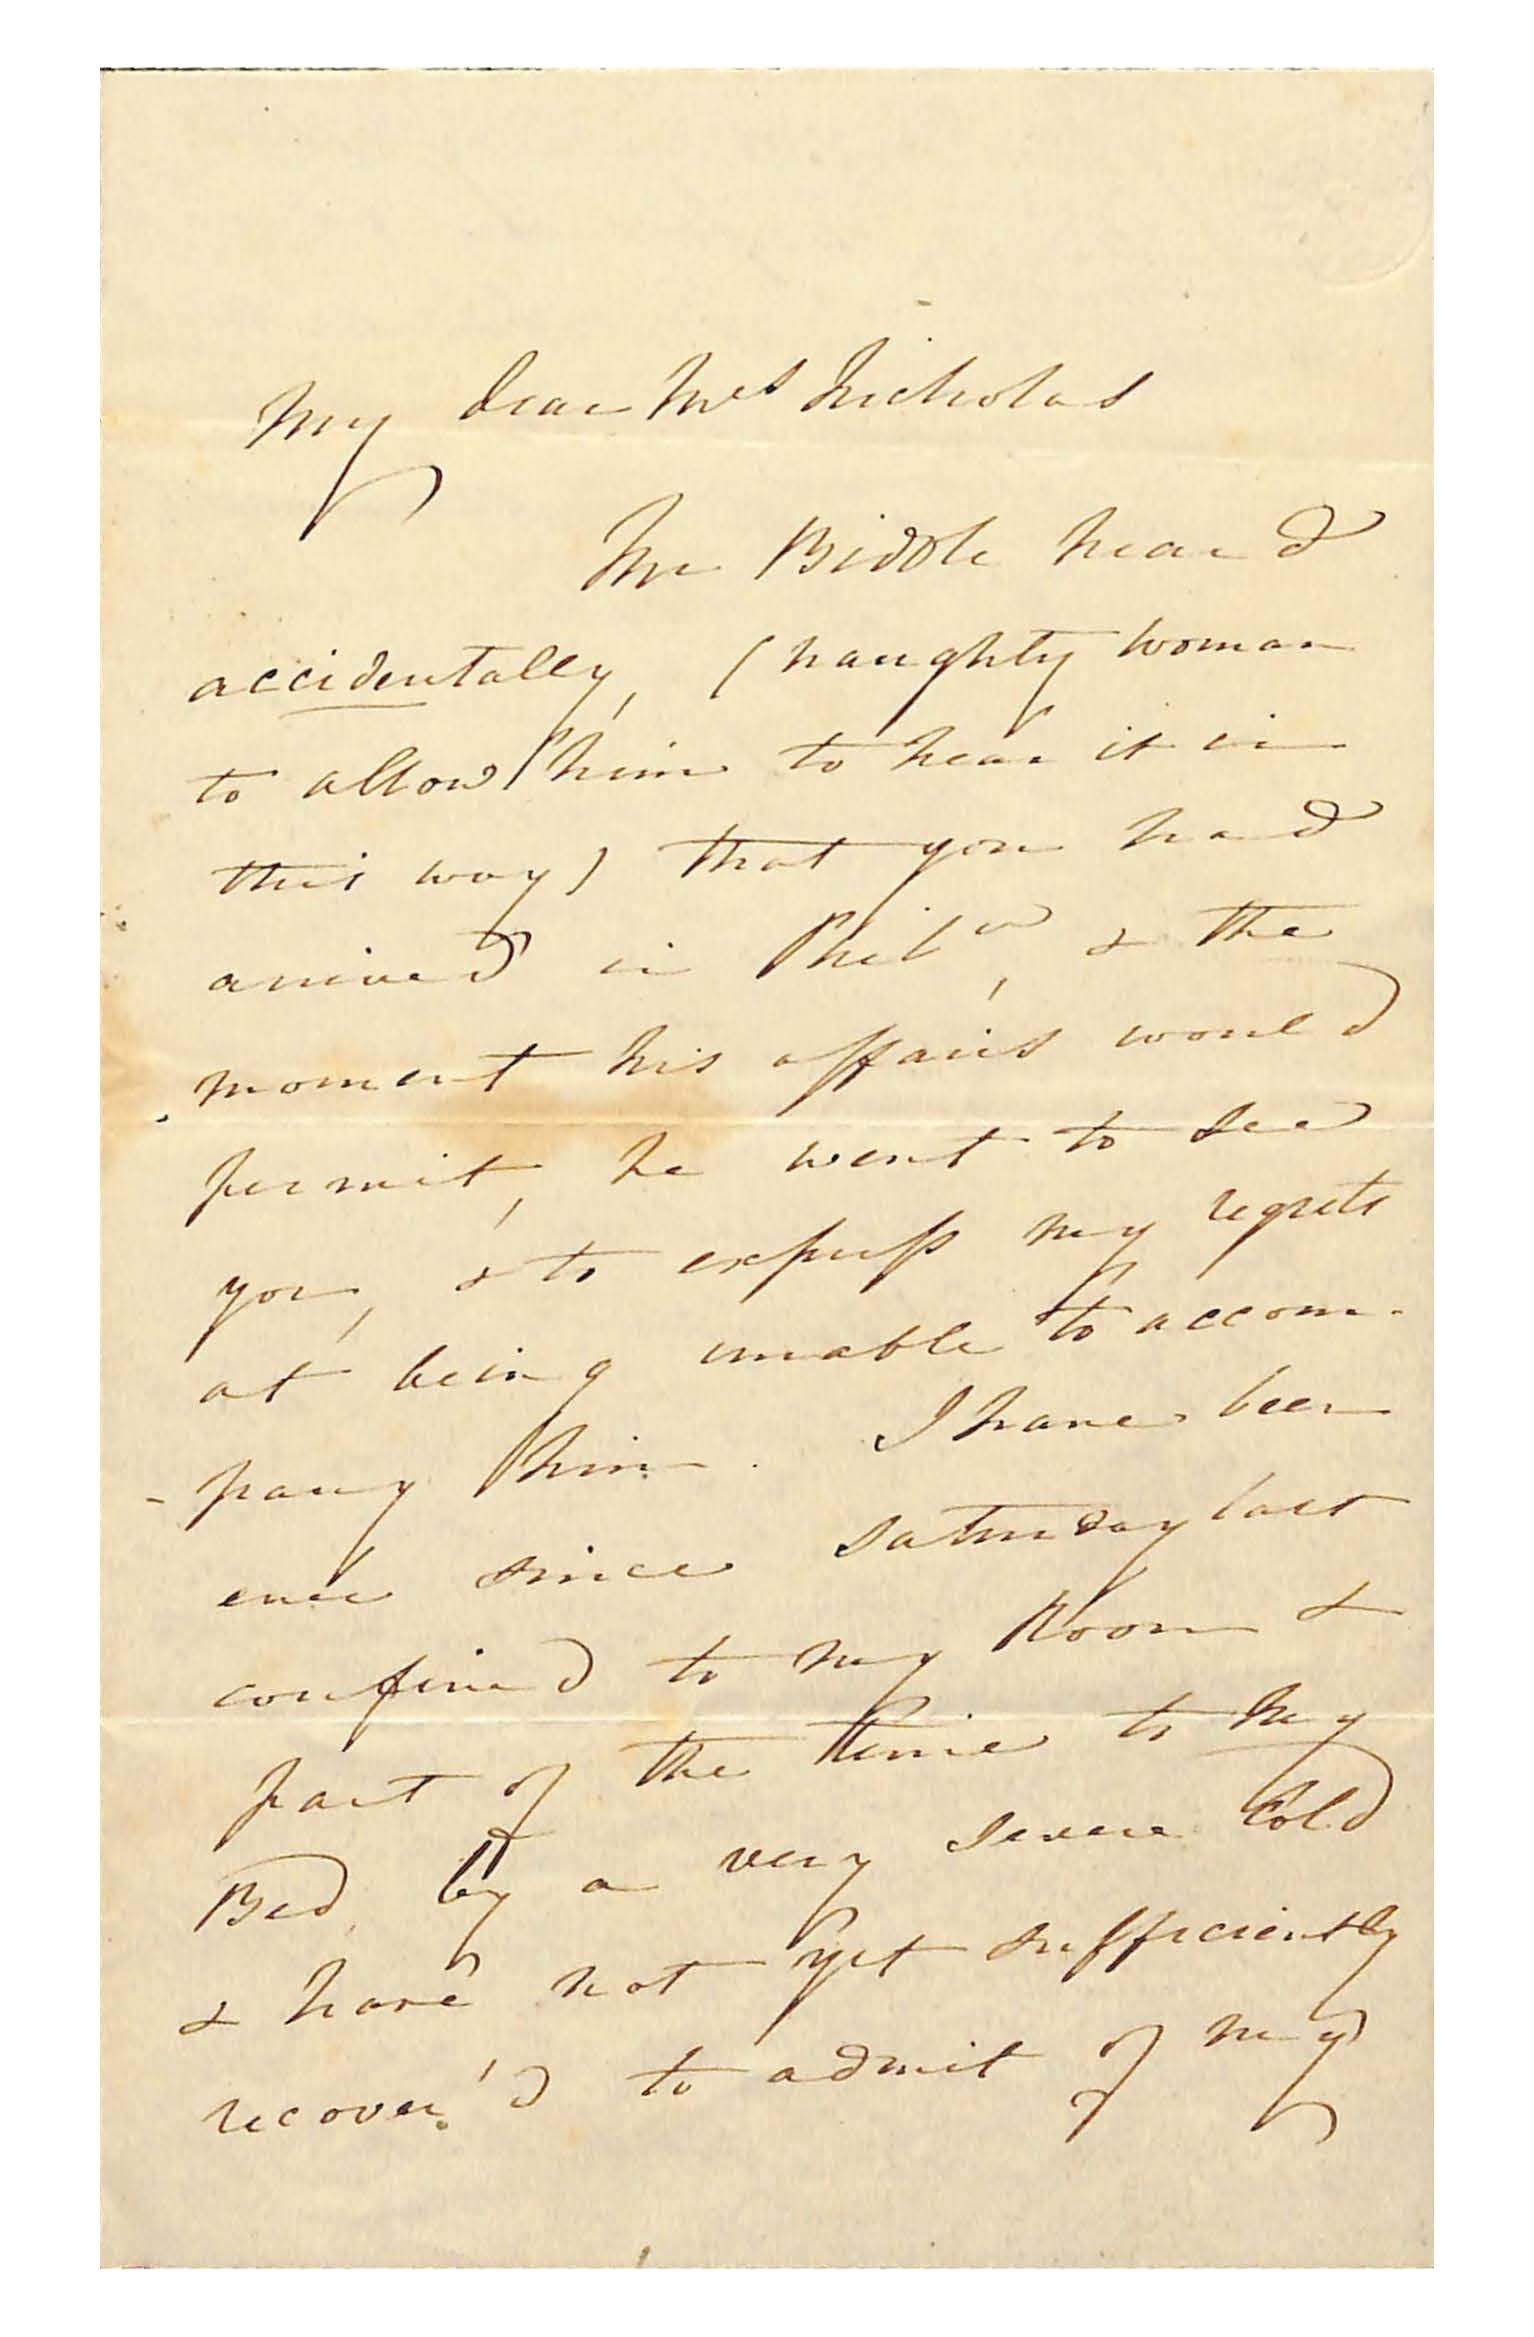 My dear Mrs Nicholas
Mr Biddle heard
accidentally, (naughty woman
to allow him to hear it in
this way) that you had
arrived in Phila, & the
moment his affairs would
permit, he went to see
you, & to express my regrets
at being unable to accom-
-pany him. I have been
ever since Saturday last
confined to my Room &
part of the time to my
Bed, by a very severe Cold
& have not yet sufficiently
recover'd to admit of my